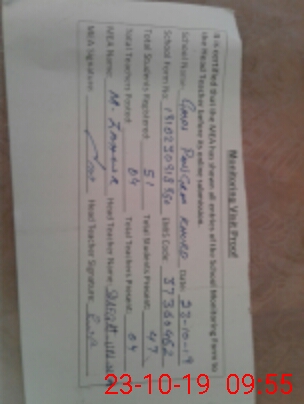 Monitoring Visit Proof
It is certified that the MEA has shown all entries of the School Monitoring Form to
the Head Teacher before its online submission.
School Name: GMPS Date: 23-10-19
School Form No: EMIS Code: 37360462
Total Students Registered: 51 Total Students Present: 47
Total Teachers Posted: 04 Total Teachers Present: 04
MEA Name: M. Head Teacher Name:
MEA Signature: Head Teacher Signature:
23-10-19 09:55